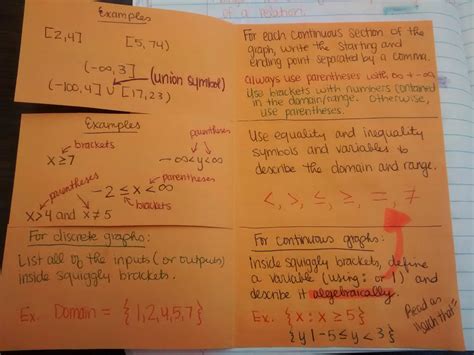 of a relation.
Examples
[2,4]
[5,74)
(-∞,3]
(-100,4] ∪ [17,23)
(union symbol)
For each continuous section of the
graph, write the starting and
ending point separated by a comma.
Always use parentheses with ∞ + -∞
Use brackets with numbers contained
in the domain/range. Otherwise,
use parentheses.
Examples
brackets
x≥7
parentheses
-∞<y<∞
parentheses
x>4 and x≠5
parentheses
-2≤x<∞
brackets
Use equality and inequality
symbols and variables to
describe the domain and range.
<, >, ≤, ≥, =, ≠
For discrete graphs:
List all of the inputs (or outputs)
inside squiggly brackets.
Ex. Domain = {1,2,4,5,7}
For continuous graphs:
Inside squiggly brackets, define
a variable (using : or |) and
describe it algebraically.
Ex. {x : x ≥ 5}
{y | -5 ≤ y < 3}
Read as
"such that"